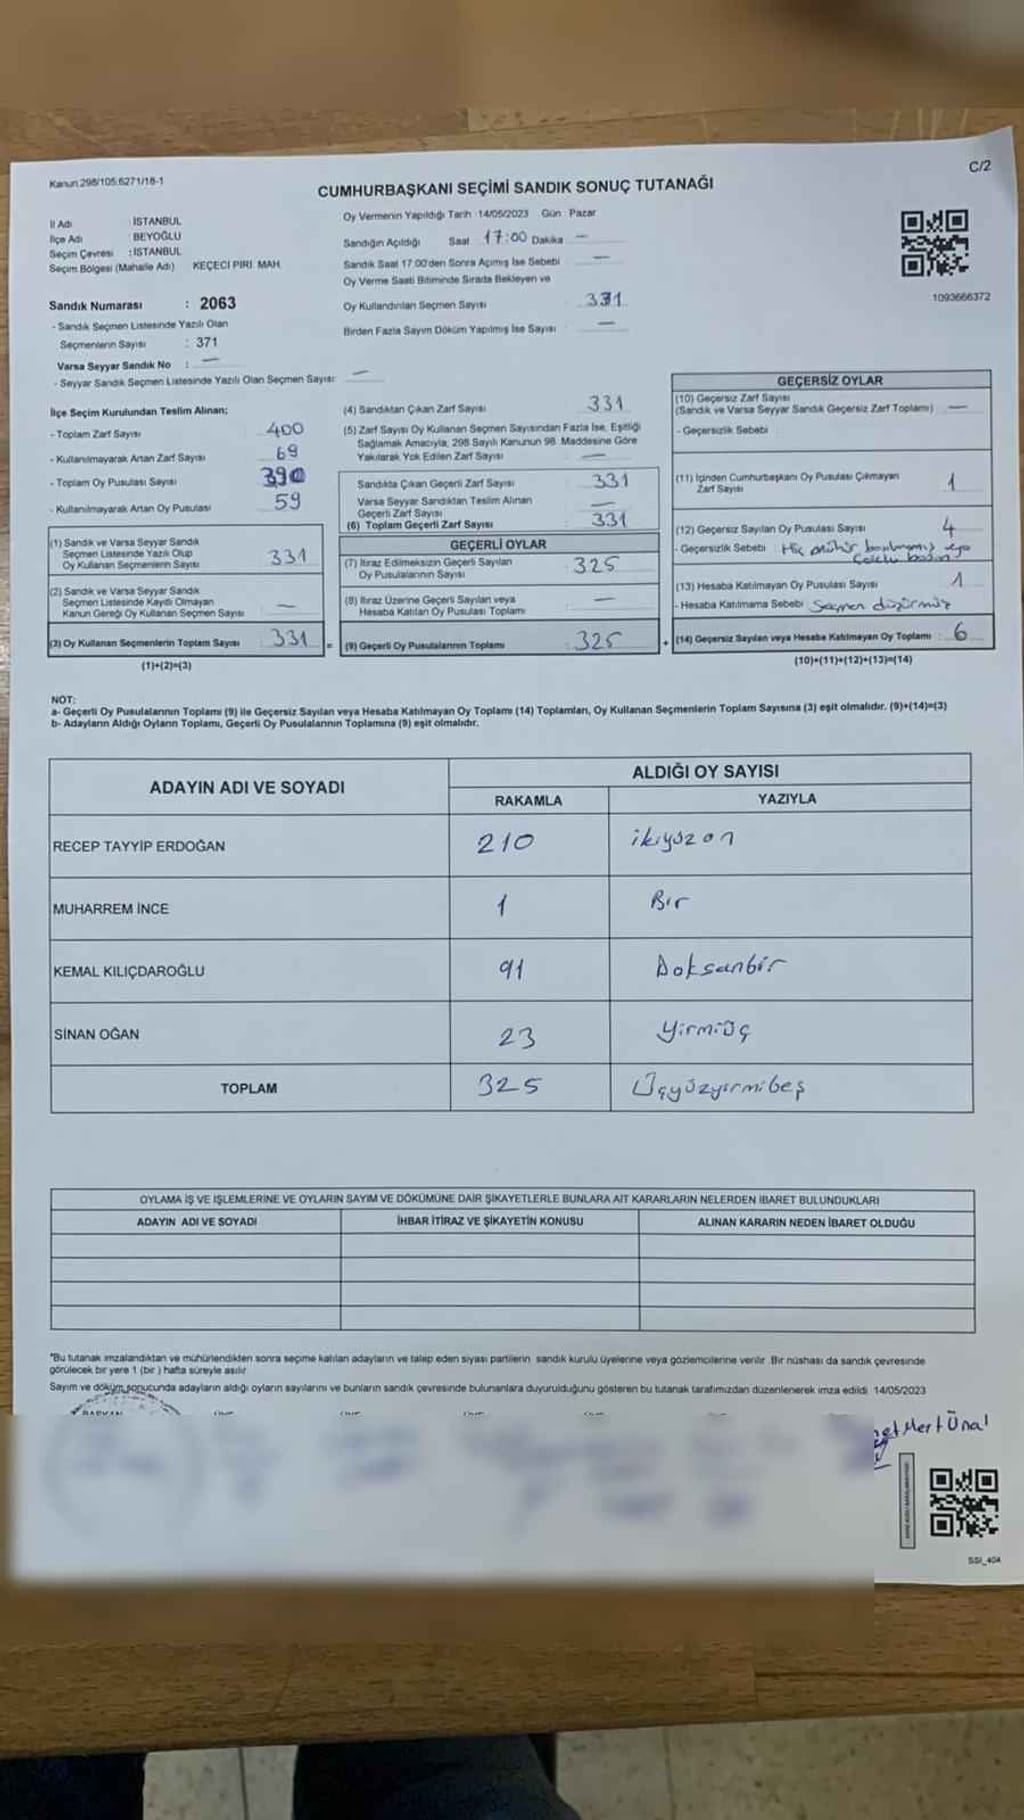 Kanun 298/105.6271/18-1
C/2
CUMHURBAŞKANI SEÇİMİ SANDIK SONUÇ TUTANAĞI
İl Adı : İSTANBUL
İlçe Adı : BEYOĞLU
Seçim Çevresi : İSTANBUL
Seçim Bölgesi (Mahalle Adı) KEÇECİ PİRİ MAH.
Sandık Numarası : 2063
- Sandık Seçmen Listesinde Yazılı Olan
Seçmenlerin Sayısı : 371
Varsa Seyyar Sandık No : —
- Seyyar Sandık Seçmen Listesinde Yazılı Olan Seçmen Sayısı: —
Oy Vermenin Yapıldığı Tarih : 14/05/2023 Gün : Pazar
Sandığın Açıldığı Saat 17:00 Dakika —
Sandık Saat 17:00'den Sonra Açılmış İse Sebebi —
Oy Verme Saati Bitiminde Sırada Bekleyen ve
Oy Kullandırılan Seçmen Sayısı 331
Birden Fazla Sayım Döküm Yapılmış İse Sayısı : —
1093666372
İlçe Seçim Kurulundan Teslim Alınan;
- Toplam Zarf Sayısı 400
- Kullanılmayarak Artan Zarf Sayısı 69
- Toplam Oy Pusulası Sayısı 390
- Kullanılmayarak Artan Oy Pusulası 59
(1) Sandık ve Varsa Seyyar Sandık
Seçmen Listesinde Yazılı Olup
Oy Kullanan Seçmenlerin Sayısı 331
(2) Sandık ve Varsa Seyyar Sandık
Seçmen Listesinde Kayıtlı Olmayan
Kanun Gereği Oy Kullanan Seçmen Sayısı —
(3) Oy Kullanan Seçmenlerin Toplam Sayısı 331 =
(1)+(2)=(3)
(4) Sandıktan Çıkan Zarf Sayısı 331
(5) Zarf Sayısı Oy Kullanan Seçmen Sayısından Fazla İse, Eşitliği
Sağlamak Amacıyla, 298 Sayılı Kanunun 98. Maddesine Göre
Yakılarak Yok Edilen Zarf Sayısı —
Sandıkta Çıkan Geçerli Zarf Sayısı 331
Varsa Seyyar Sandıktan Teslim Alınan
Geçerli Zarf Sayısı —
(6) Toplam Geçerli Zarf Sayısı 331
GEÇERLİ OYLAR
(7) İtiraz Edilmeksizin Geçerli Sayılan
Oy Pusulalarının Sayısı : 325
(8) İtiraz Üzerine Geçerli Sayılan veya
Hesaba Katılan Oy Pusulası Toplamı : —
(9) Geçerli Oy Pusulalarının Toplamı : 325 +
GEÇERSİZ OYLAR
(10) Geçersiz Zarf Sayısı
(Sandık ve Varsa Seyyar Sandık Geçersiz Zarf Toplamı) : —
- Geçersizlik Sebebi :
(11) İçinden Cumhurbaşkanı Oy Pusulası Çıkmayan
Zarf Sayısı : 1
(12) Geçersiz Sayılan Oy Pusulası Sayısı : 4
- Geçersizlik Sebebi : Hiç mühür basılmamış veya
(13) Hesaba Katılmayan Oy Pusulası Sayısı : 1
- Hesaba Katılmama Sebebi : Seçmen düşürmüş
(14) Geçersiz Sayılan veya Hesaba Katılmayan Oy Toplamı : 6
(10)+(11)+(12)+(13)=(14)
NOT:
a- Geçerli Oy Pusulalarının Toplamı (9) ile Geçersiz Sayılan veya Hesaba Katılmayan Oy Toplamı (14) Toplamları, Oy Kullanan Seçmenlerin Toplam Sayısına (3) eşit olmalıdır. (9)+(14)=(3)
b- Adayların Aldığı Oyların Toplamı, Geçerli Oy Pusulalarının Toplamına (9) eşit olmalıdır.
ADAYIN ADI VE SOYADI
ALDIĞI OY SAYISI
RAKAMLA YAZIYLA
RECEP TAYYİP ERDOĞAN 210 ikiyüzon
MUHARREM İNCE 1 Bir
KEMAL KILIÇDAROĞLU 91 Doksanbir
SİNAN OĞAN 23 Yirmiüç
TOPLAM 325 Üçyüzyirmibeş
OYLAMA İŞ VE İŞLEMLERİNE VE OYLARIN SAYIM VE DÖKÜMÜNE DAİR ŞİKAYETLERLE BUNLARA AİT KARARLARIN NELERDEN İBARET BULUNDUKLARI
ADAYIN ADI VE SOYADI İHBAR İTİRAZ VE ŞİKAYETİN KONUSU ALINAN KARARIN NEDEN İBARET OLDUĞU
*Bu tutanak imzalandıktan ve mühürlendikten sonra seçime katılan adayların ve talep eden siyasi partilerin sandık kurulu üyelerine veya gözlemcilerine verilir. Bir nüshası da sandık çevresinde
görülecek bir yere 1 (bir) hafta süreyle asılır
Sayım ve döküm sonucunda adayların aldığı oyların sayılarını ve bunların sandık çevresinde bulunanlara duyurulduğunu gösteren bu tutanak tarafımızdan düzenlenerek imza edildi. 14/05/2023
BAŞKAN
Mert Ünal
SSI_404